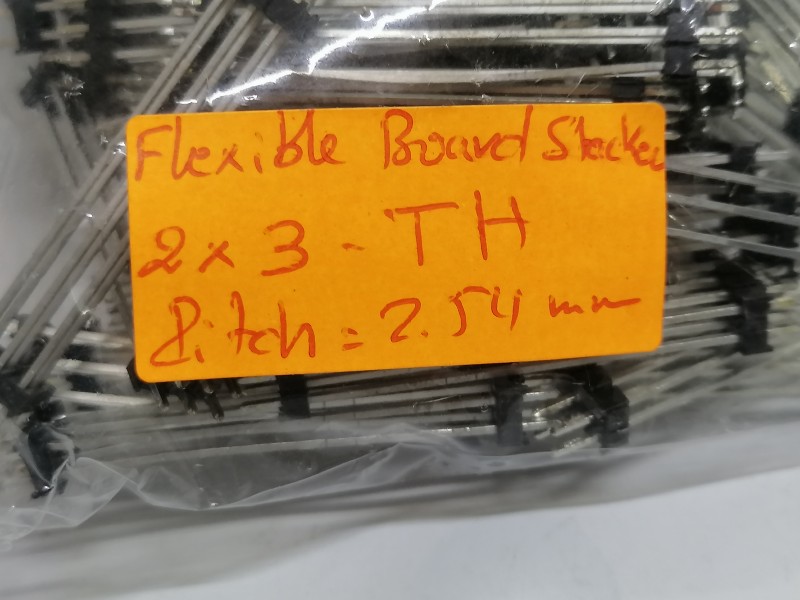 Flexible Board Stacker
2 x 3 - TH
Pitch = 2.54 mm